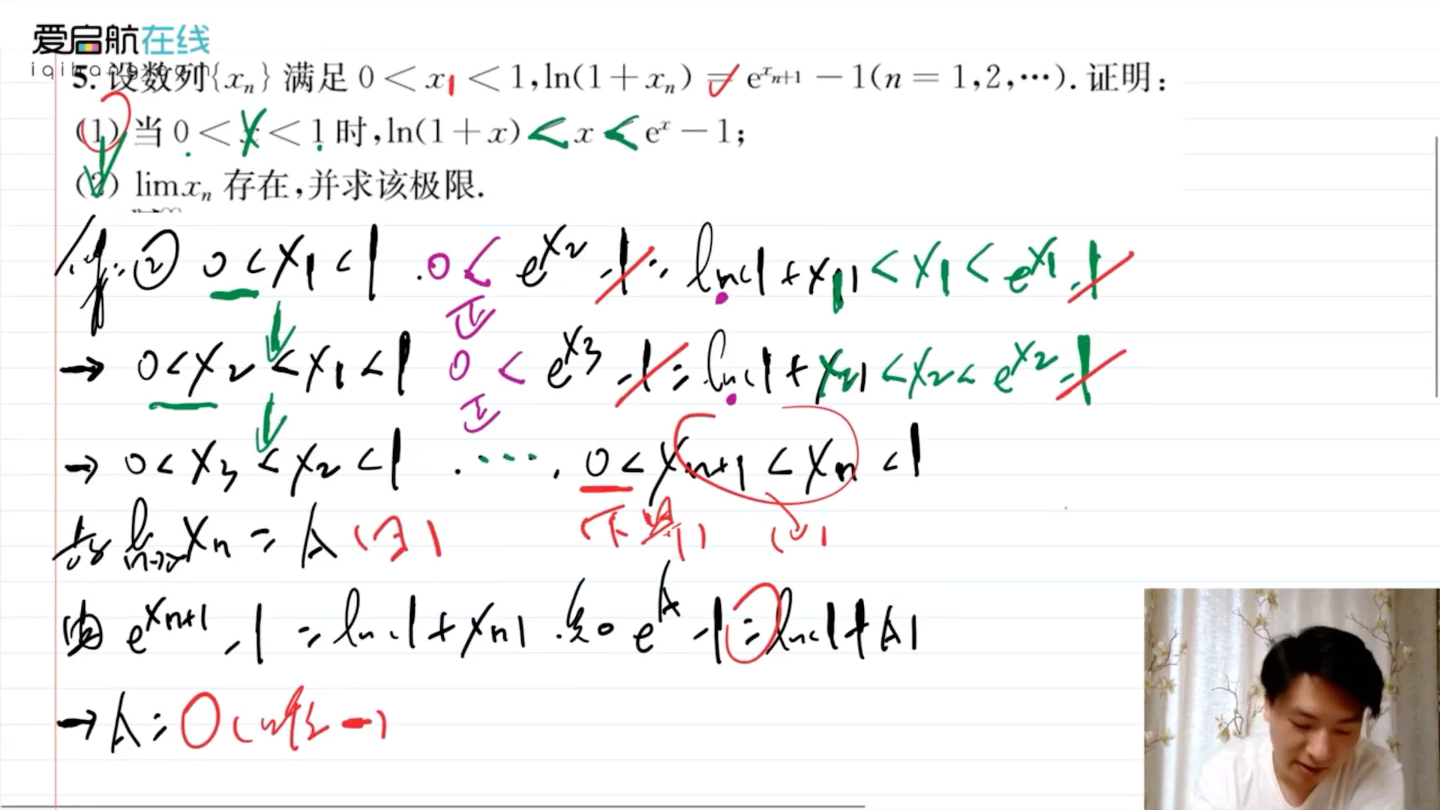 爱启航在线
iqihang.com
5. 设数列{xₙ} 满足 0 < x₁ < 1, ln(1 + xₙ) = e^{xₙ₊₁} − 1(n = 1,2,⋯). 证明:
(1) 当 0 < x < 1 时, ln(1 + x) < x < eˣ − 1;
(2) lim xₙ 存在, 并求该极限.
n→∞
② 0 < x₁ < 1 . 0 < e^{x₂} − 1 = ln(1 + x₁) < x₁ < e^{x₁} − 1
正
→ 0 < x₂ < x₁ < 1 0 < e^{x₃} − 1 = ln(1 + x₂) < x₂ < e^{x₂} − 1
正
→ 0 < x₃ < x₂ < 1 . ⋯ . 0 < xₙ₊₁ < xₙ < 1
故 lim xₙ = A (∃) (下界) (↓)
n→∞
由 e^{xₙ₊₁} − 1 = ln(1 + xₙ) . 知 e^A − 1 = ln(1 + A)
→ A = 0 (唯一)